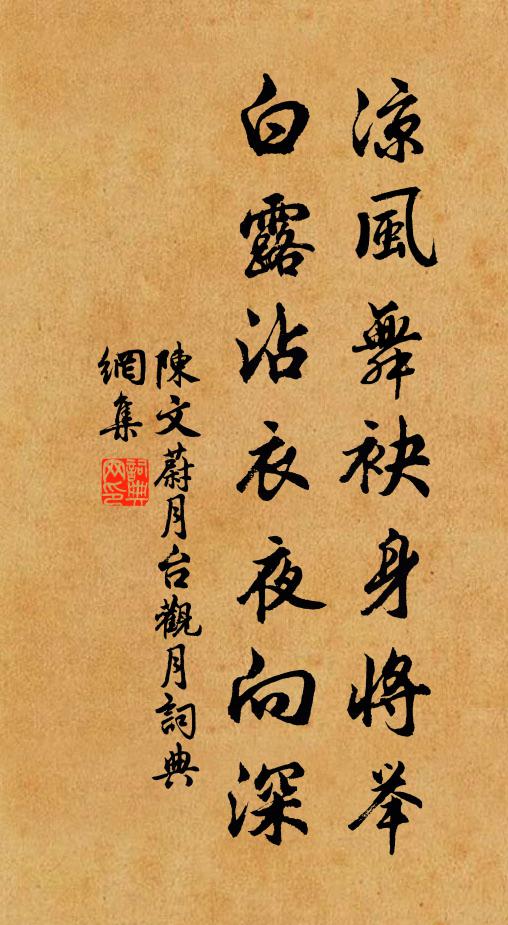 凉風舞袂身將举
白露沾衣夜向深
陳文蔚月台觀月詞典
網集
詞典
网印